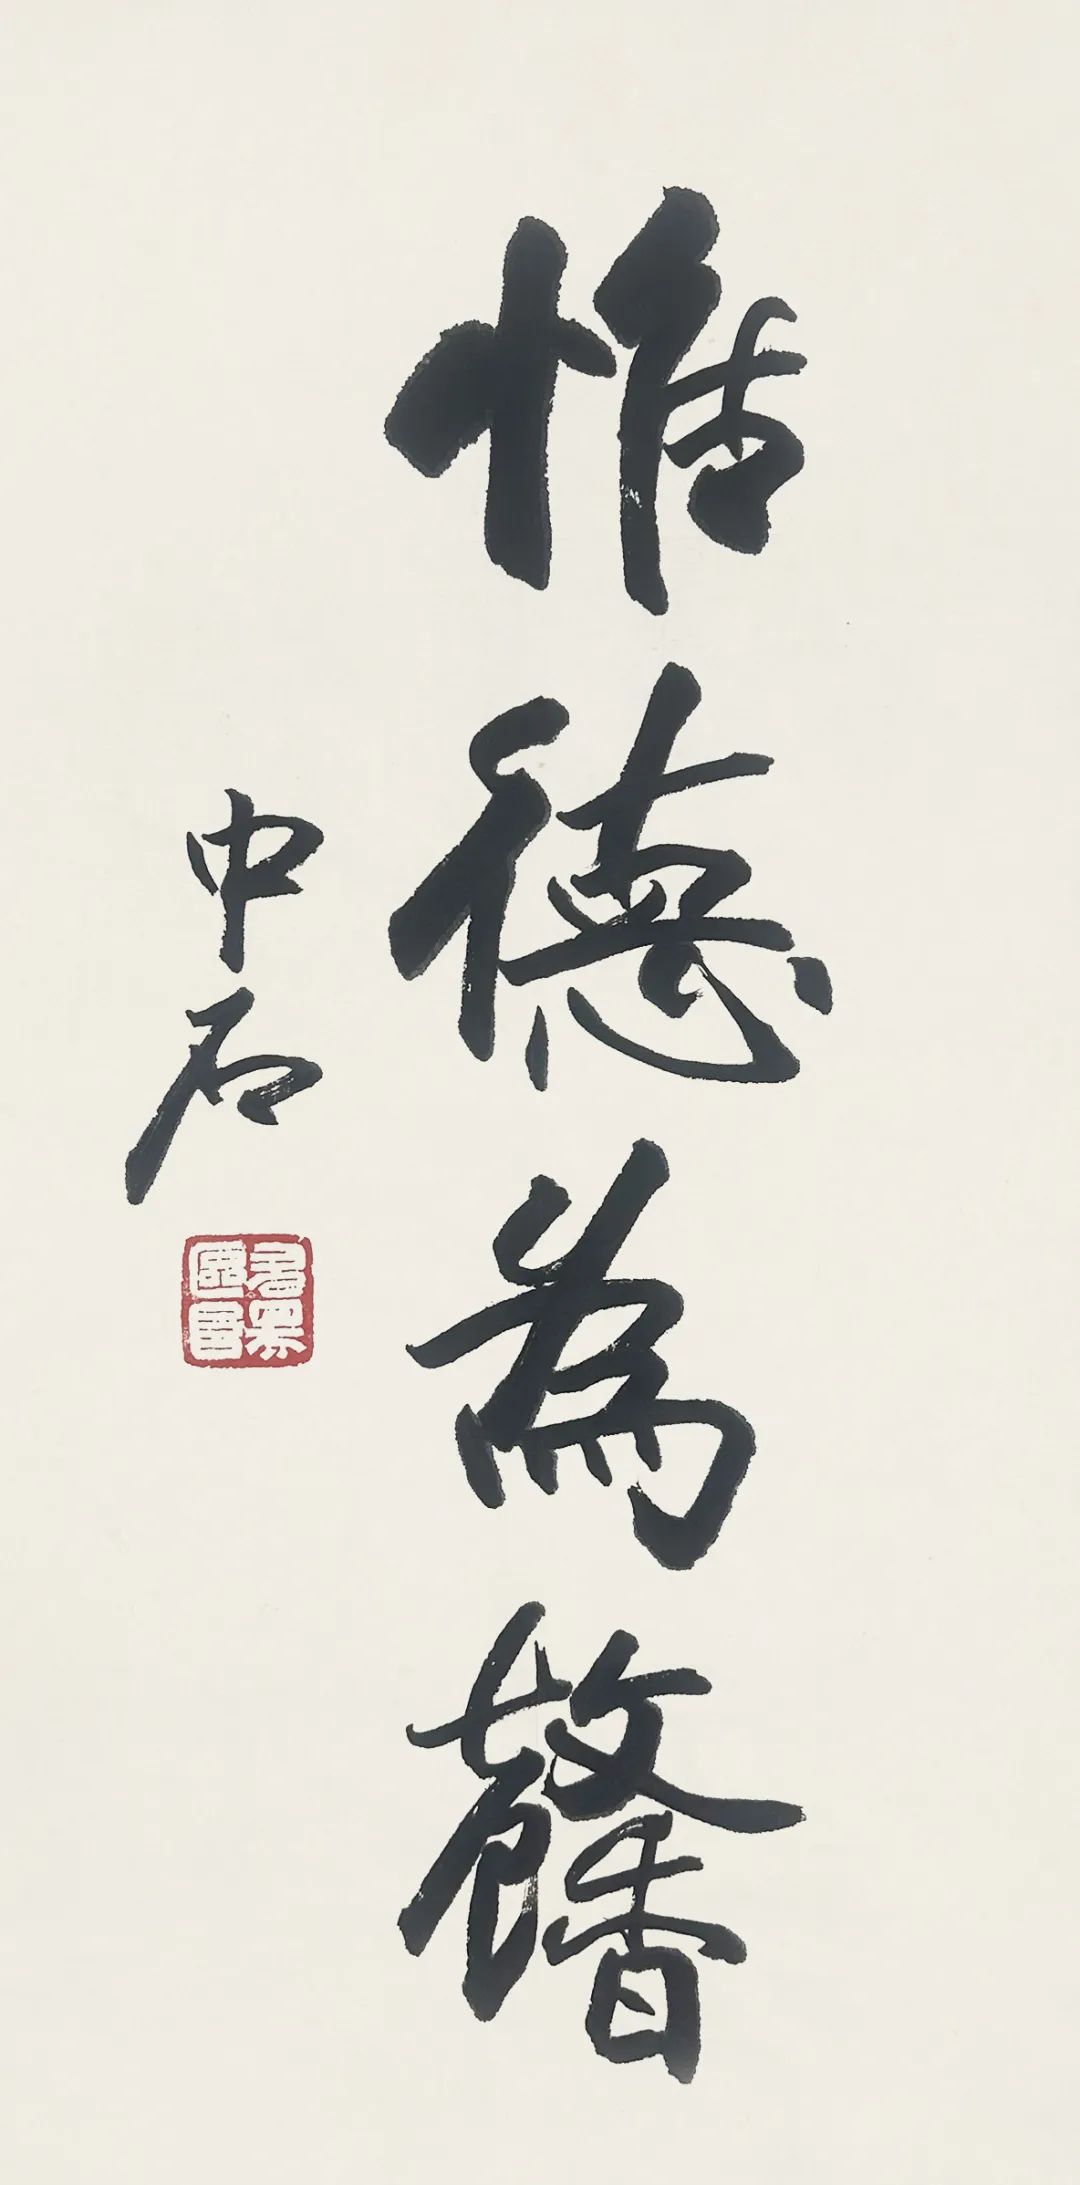 惟德为馨
中石